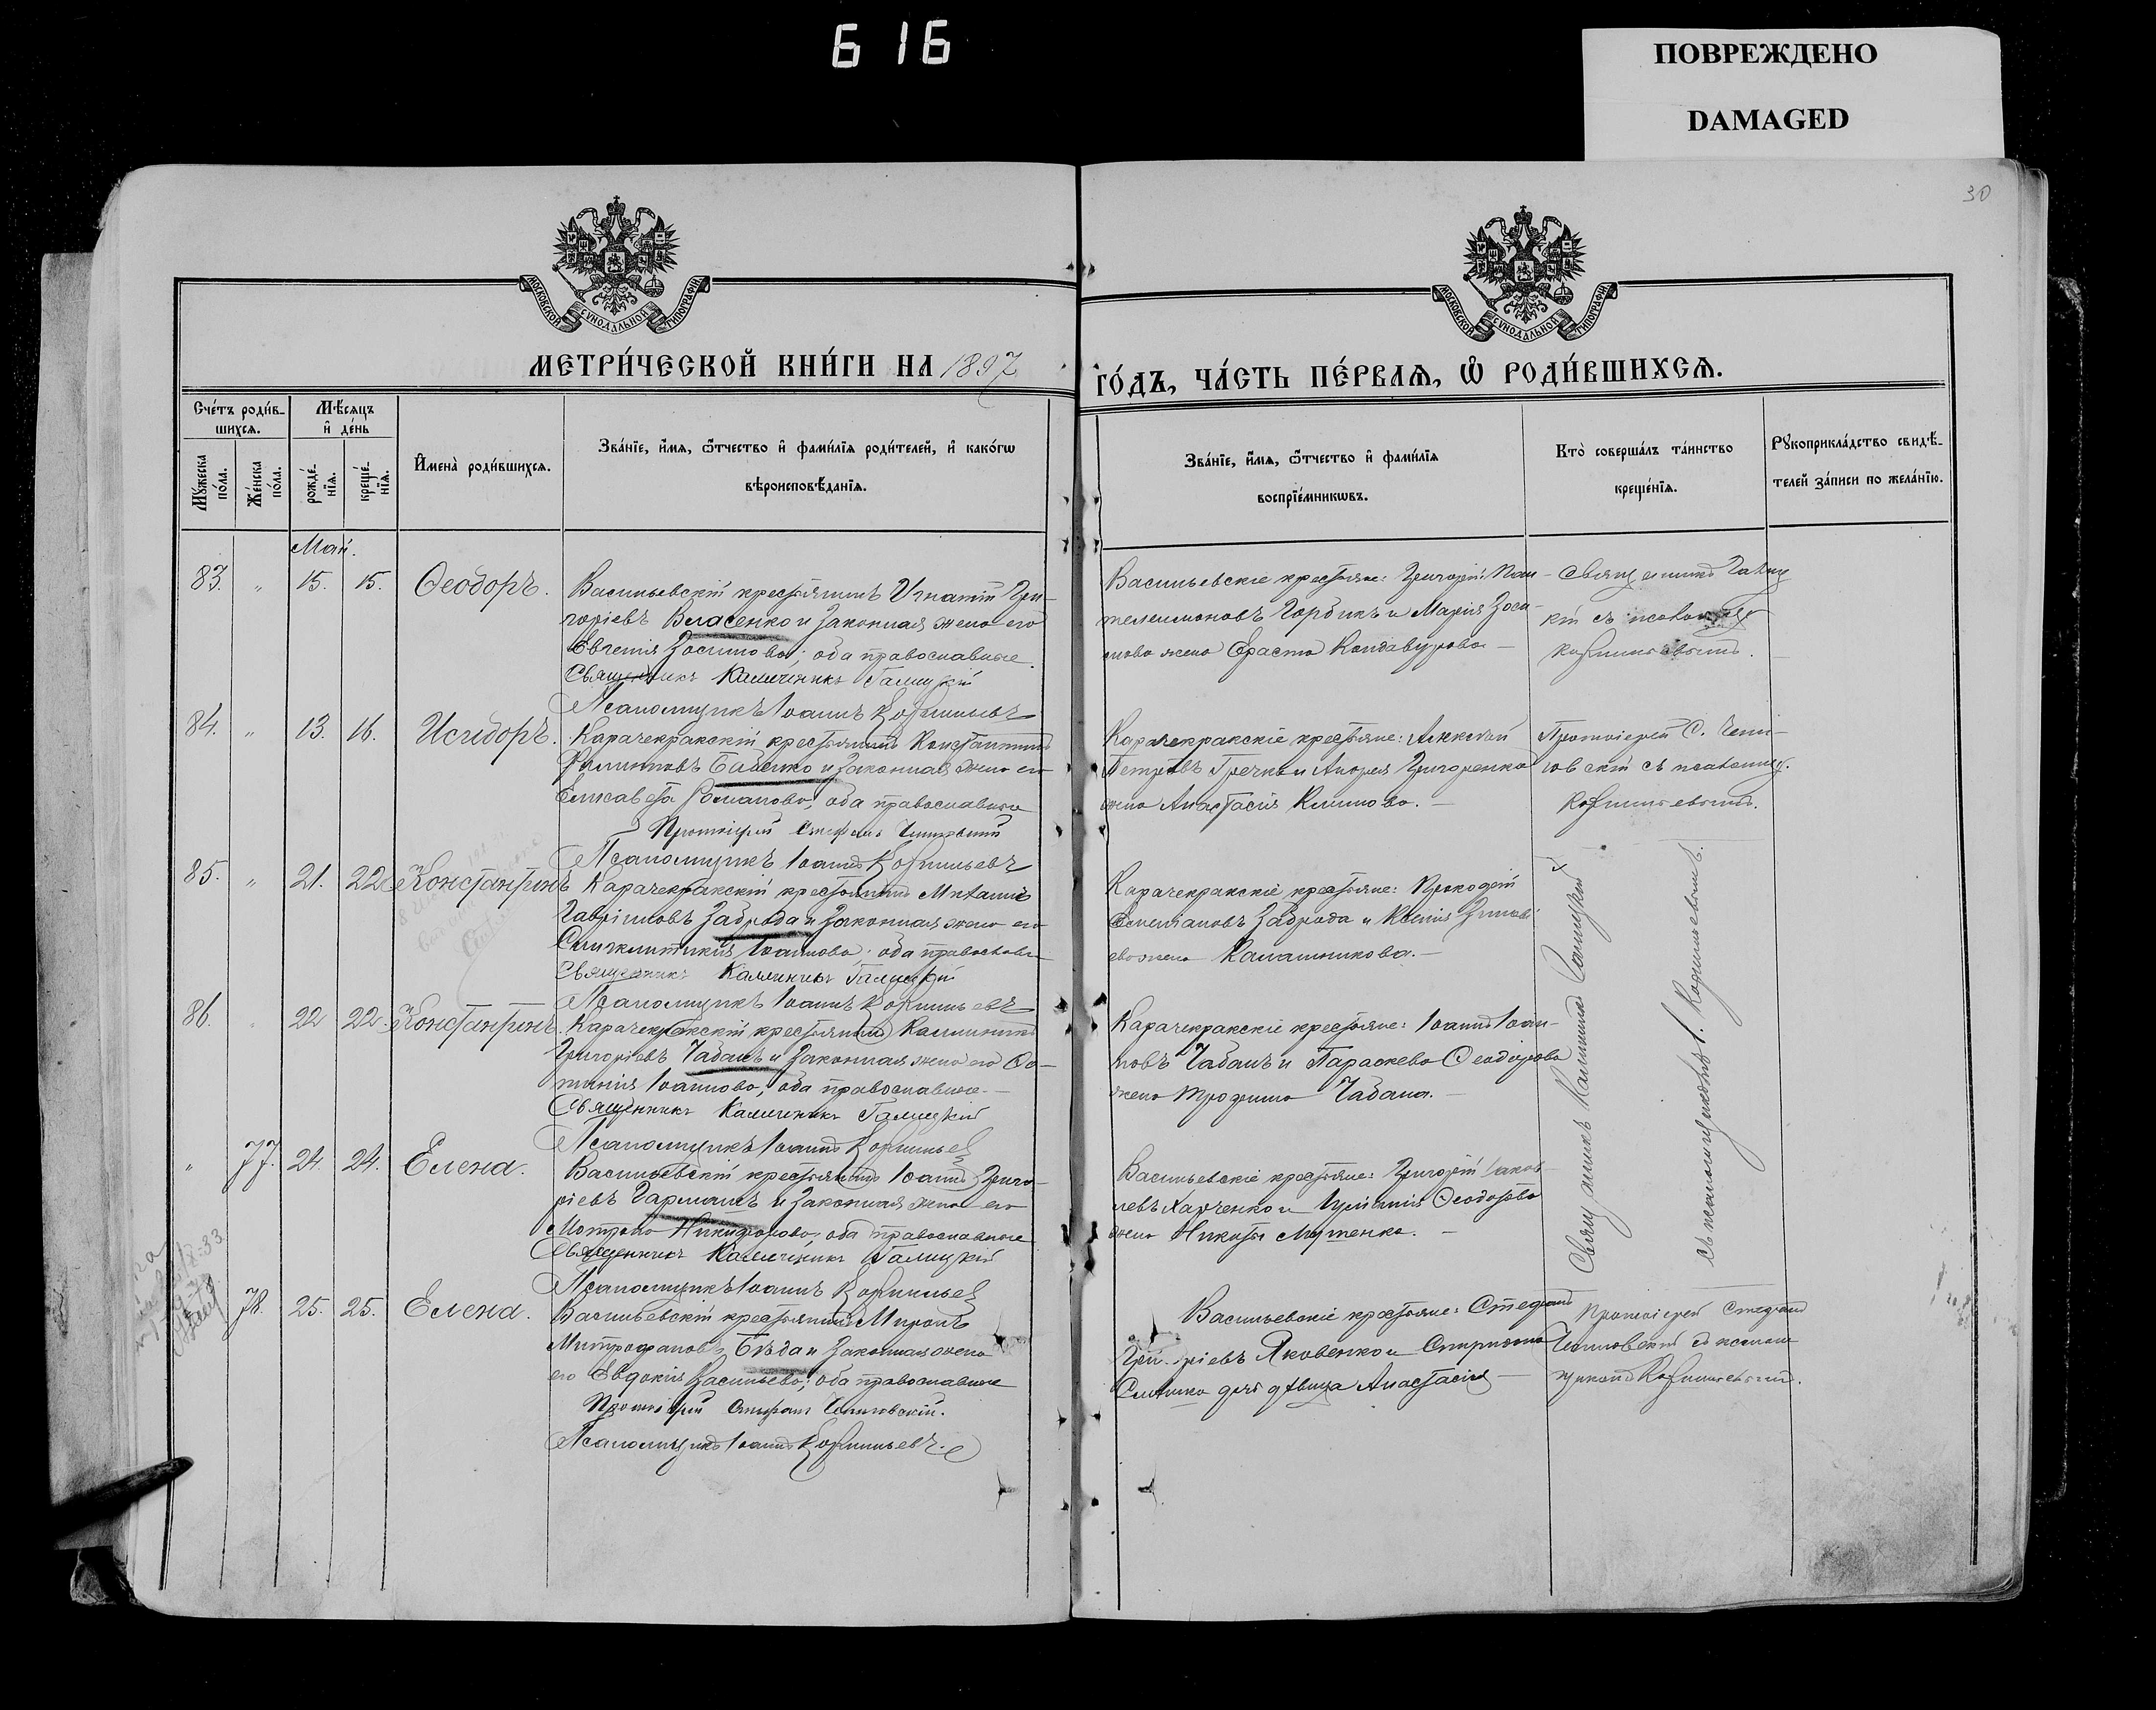 616
ПОВРЕЖДЕНО
DAMAGED
30
МОСКОВСКОЙ СѴНОДАЛЬНОЙ ТИПОГРАФІИ
МОСКОВСКОЙ СѴНОДАЛЬНОЙ ТИПОГРАФІИ
МЕТРИ́ЧЕСКОЙ КНИ́ГИ НА 1897
ГО́ДЪ, ЧА́СТЬ ПЕ́РВАѦ, Ѡ҆ РОДИ́ВШИХСѦ.
Сче́тъ роди́в-
шихсѧ.
Мѣ́сѧцъ
и҆ де́нь
Мꙋ́жеска
по́ла.
Же́нска
по́ла.
рожде́-
нїѧ.
креще́-
нїѧ.
И҆мена̀ роди́вшихсѧ.
Зва́нїе, и҆́мѧ, ѻ҆́тчество и҆ фами́лїѧ роди́телей, и҆ како́гѡ
вѣроисповѣ́данїѧ.
Зва́нїе, и҆́мѧ, ѻ҆́тчество и҆ фами́лїѧ
воспрїе́мникѡвъ.
Кто̀ соверша́лъ та́инство
креще́нїѧ.
Рꙋкоприкла́дство свидѣ́-
телей за́писи по жела́нїю.
Май.
83. " 15. 15. Ѳеодоръ.
Васильевскій крестьянинъ Игнатій Гри-
горіевъ Власенко и законная жена его
Евгенія Зосимова; оба православные.
Священникъ Каллиникъ Галицкій
Псаломщикъ Іоаннъ Корнильевъ
Васильевскіе крестьяне: Григорій Пан-
телеимоновъ Горбикъ и Марія Зоси-
мова жена Ераста
Священникъ Галиц-
кій съ псаломщ.
Корнильевымъ.
84. " 13. 16. Исидоръ.
Карачекракскій крестьянинъ Константинъ
Филипповъ Бабенко и законная жена его
Елисавета Романова; оба православные
Протоіерей Стефанъ
Псаломщикъ Іоаннъ Корнильевъ
Карачекракскіе крестьяне: Алексѣй
Петровъ Гречка и Андрея Григоренко
жена Анастасія Климова.
Протоіерей С.
съ псаломщ.
Корнильевымъ.
85. " 21. 22. Константинъ
Карачекракскій крестьянинъ Михаилъ
Гавріиловъ Заброда и законная жена его
Синклитикія Іоаннова; оба православн.
Священникъ Каллиникъ Галицкій
Псаломщикъ Іоаннъ Корнильевъ
Карачекракскіе крестьяне: Прокофій
Заброда и Ксенія Зинові-
ева жена Калашникова.
Священникъ Каллиникъ Галицкій
съ псаломщикомъ І. Корнильевымъ.
86. " 22 22. Константинъ.
Карачекракскій крестьянинъ Каллиникъ
Григоріевъ Чабанъ и законная жена его До-
мникія Іоаннова; оба православные.
Священникъ Каллиникъ Галицкій
Псаломщикъ Іоаннъ Корнильевъ
Карачекракскіе крестьяне: Іоаннъ Іоан-
новъ Чабанъ и Параскева Ѳеодорова
жена Трофима Чабана.
" 77. 24. 24. Елена.
Васильевскій крестьянинъ Іоаннъ Григо-
ріевъ Гармашъ и законная жена его
Матрона Никифорова; оба православные
Священникъ Каллиникъ Галицкій
Псаломщикъ Іоаннъ Корнильев
Васильевскіе крестьяне: Григорій Іаков-
левъ Харченко и Ѳеодотова
жена Никиты
78. 25. 25. Елена.
Васильевскій крестьянинъ Миронъ
Митрофановъ Бѣда и законная жена
его Евдокія Васильева; оба православные
Протоіерей Стефанъ
Псаломщикъ Іоаннъ Корнильевъ.
Васильевскіе крестьяне: Стефанъ
Григоріевъ Яковенко и Спиридона
дочь дѣвица Анастасія
Протоіерей Стефанъ
съ псалом-
щикомъ Корнильевымъ.